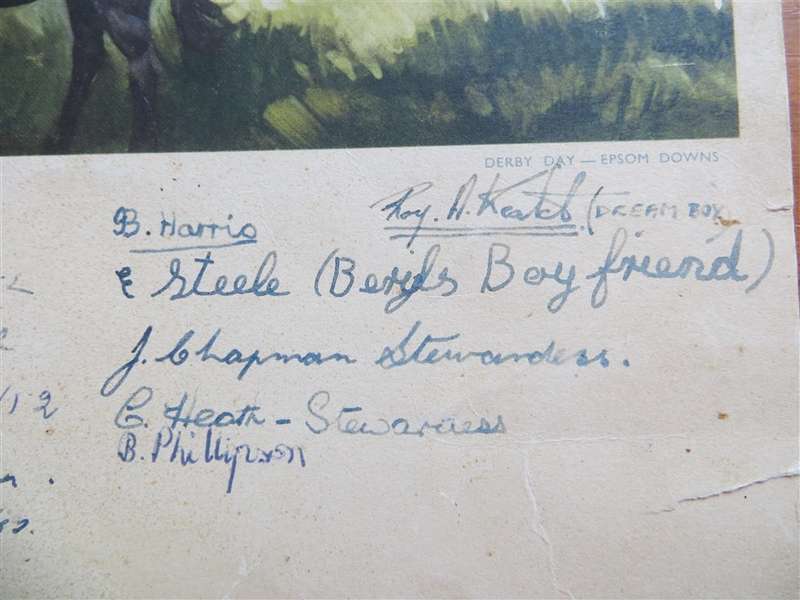 DERBY DAY — EPSOM DOWNS
B. Harris
Roy. A. (DREAM BOY
& Steele (Beryls Boy friend)
J. Chapman Stewardess.
C. Heath - Stewarness
B. Phillipson
12